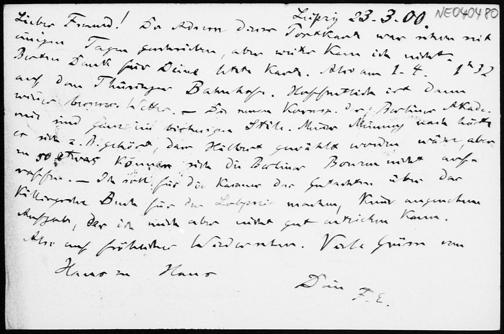 NE040480
Leipzig 23.3.00.
Lieber Freund! Die Adresse dieser Postkarte war schon seit
einigen Tagen geschrieben, aber weiter kam ich nicht
Besten Dank für Deine letzte Karte. Also am 1.4. 1h 32
auf dem Thüringer Bahnhof. Hoffentlich ist dann
wieder besseres Wetter. — Die neuen Korresp. der Berliner Akad.
sind ganz im bisherigen Stile. Meiner Meinung nach hätte
es sich z. B. gehört, dass Hilbert gewählt worden wäre, aber
zu so etwas können sich die Berliner Bonzen nicht auf-
raffen. — Ich soll für die Kasaner das Gutachten über das
Killingsche Buch für den machen, keine angenehme
Aufgabe, der ich mich aber nicht gut entziehen kann.
Also auf fröhliches Wiedersehen. Viele Grüsse von
Haus zu Haus
Dein
F. E.